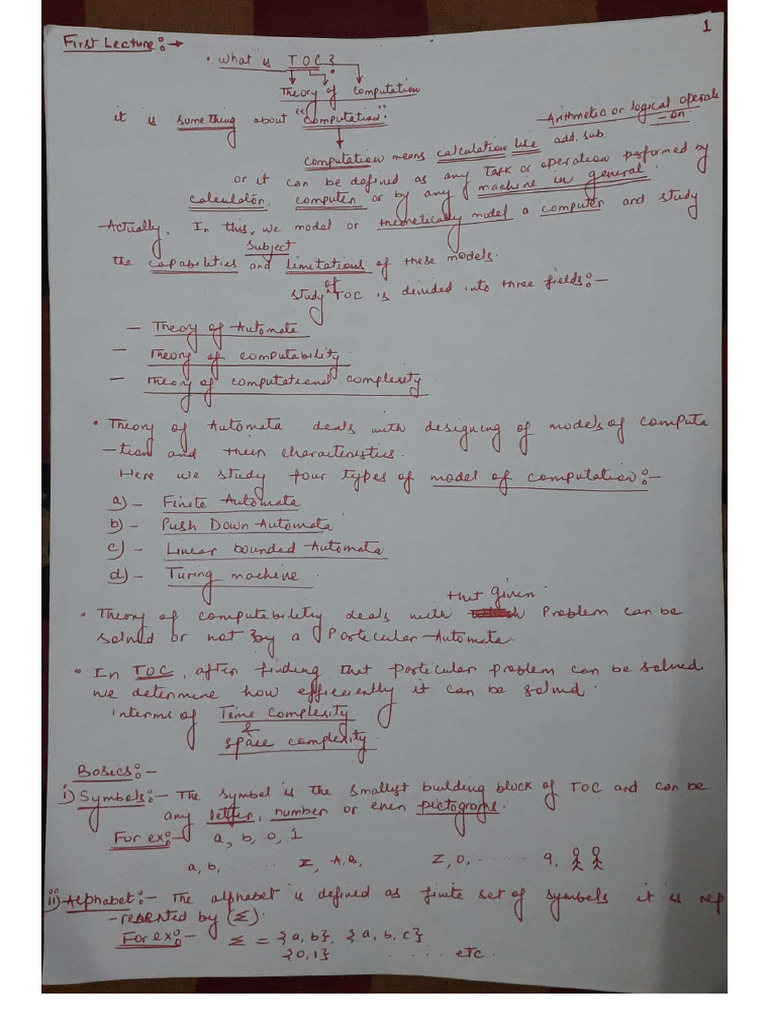 1
First Lecture:→
• What is TOC?
Theory of Computation
it is something about "Computation":
Arithmetic or logical operati
-on
Computation means calculation like add, sub.
or it can be defined as any Task or operation performed by
calculator, computer or by any machine in general.
Actually, In this, we model or theoretically model a computer and study
subject
the capabilities and limitations of these models.
study of TOC is divided into three fields:-
- Theory of Automata
- Theory of computability
- Theory of computational complexity
• Theory of Automata deals with designing of models of computa
-tion and their characteristics.
Here we study four types of model of computation:-
a)- Finite Automata
b)- Push Down Automata
c)- Linear bounded Automata
d)- Turing machine.
that given
• Theory of computability deals with Problem can be
solved or not by a Particular Automata.
• In TOC, after finding that particular problem can be solved
we determine how efficiently it can be solved.
interms of Time Complexity
&
space complexity.
Basics:-
i) Symbols:- The symbol is the smallest building block of TOC and can be
any letter, number or even pictographs.
For ex:- a, b, 0, 1
a, b, ..... z, A, B, Z, 0, ..... 9,
ii) Alphabet:- The alphabet is defined as finite set of symbols it is rep
-resented by (Σ).
For ex:- Σ = {a, b}, {a, b, c}
{0, 1} ..... etc.